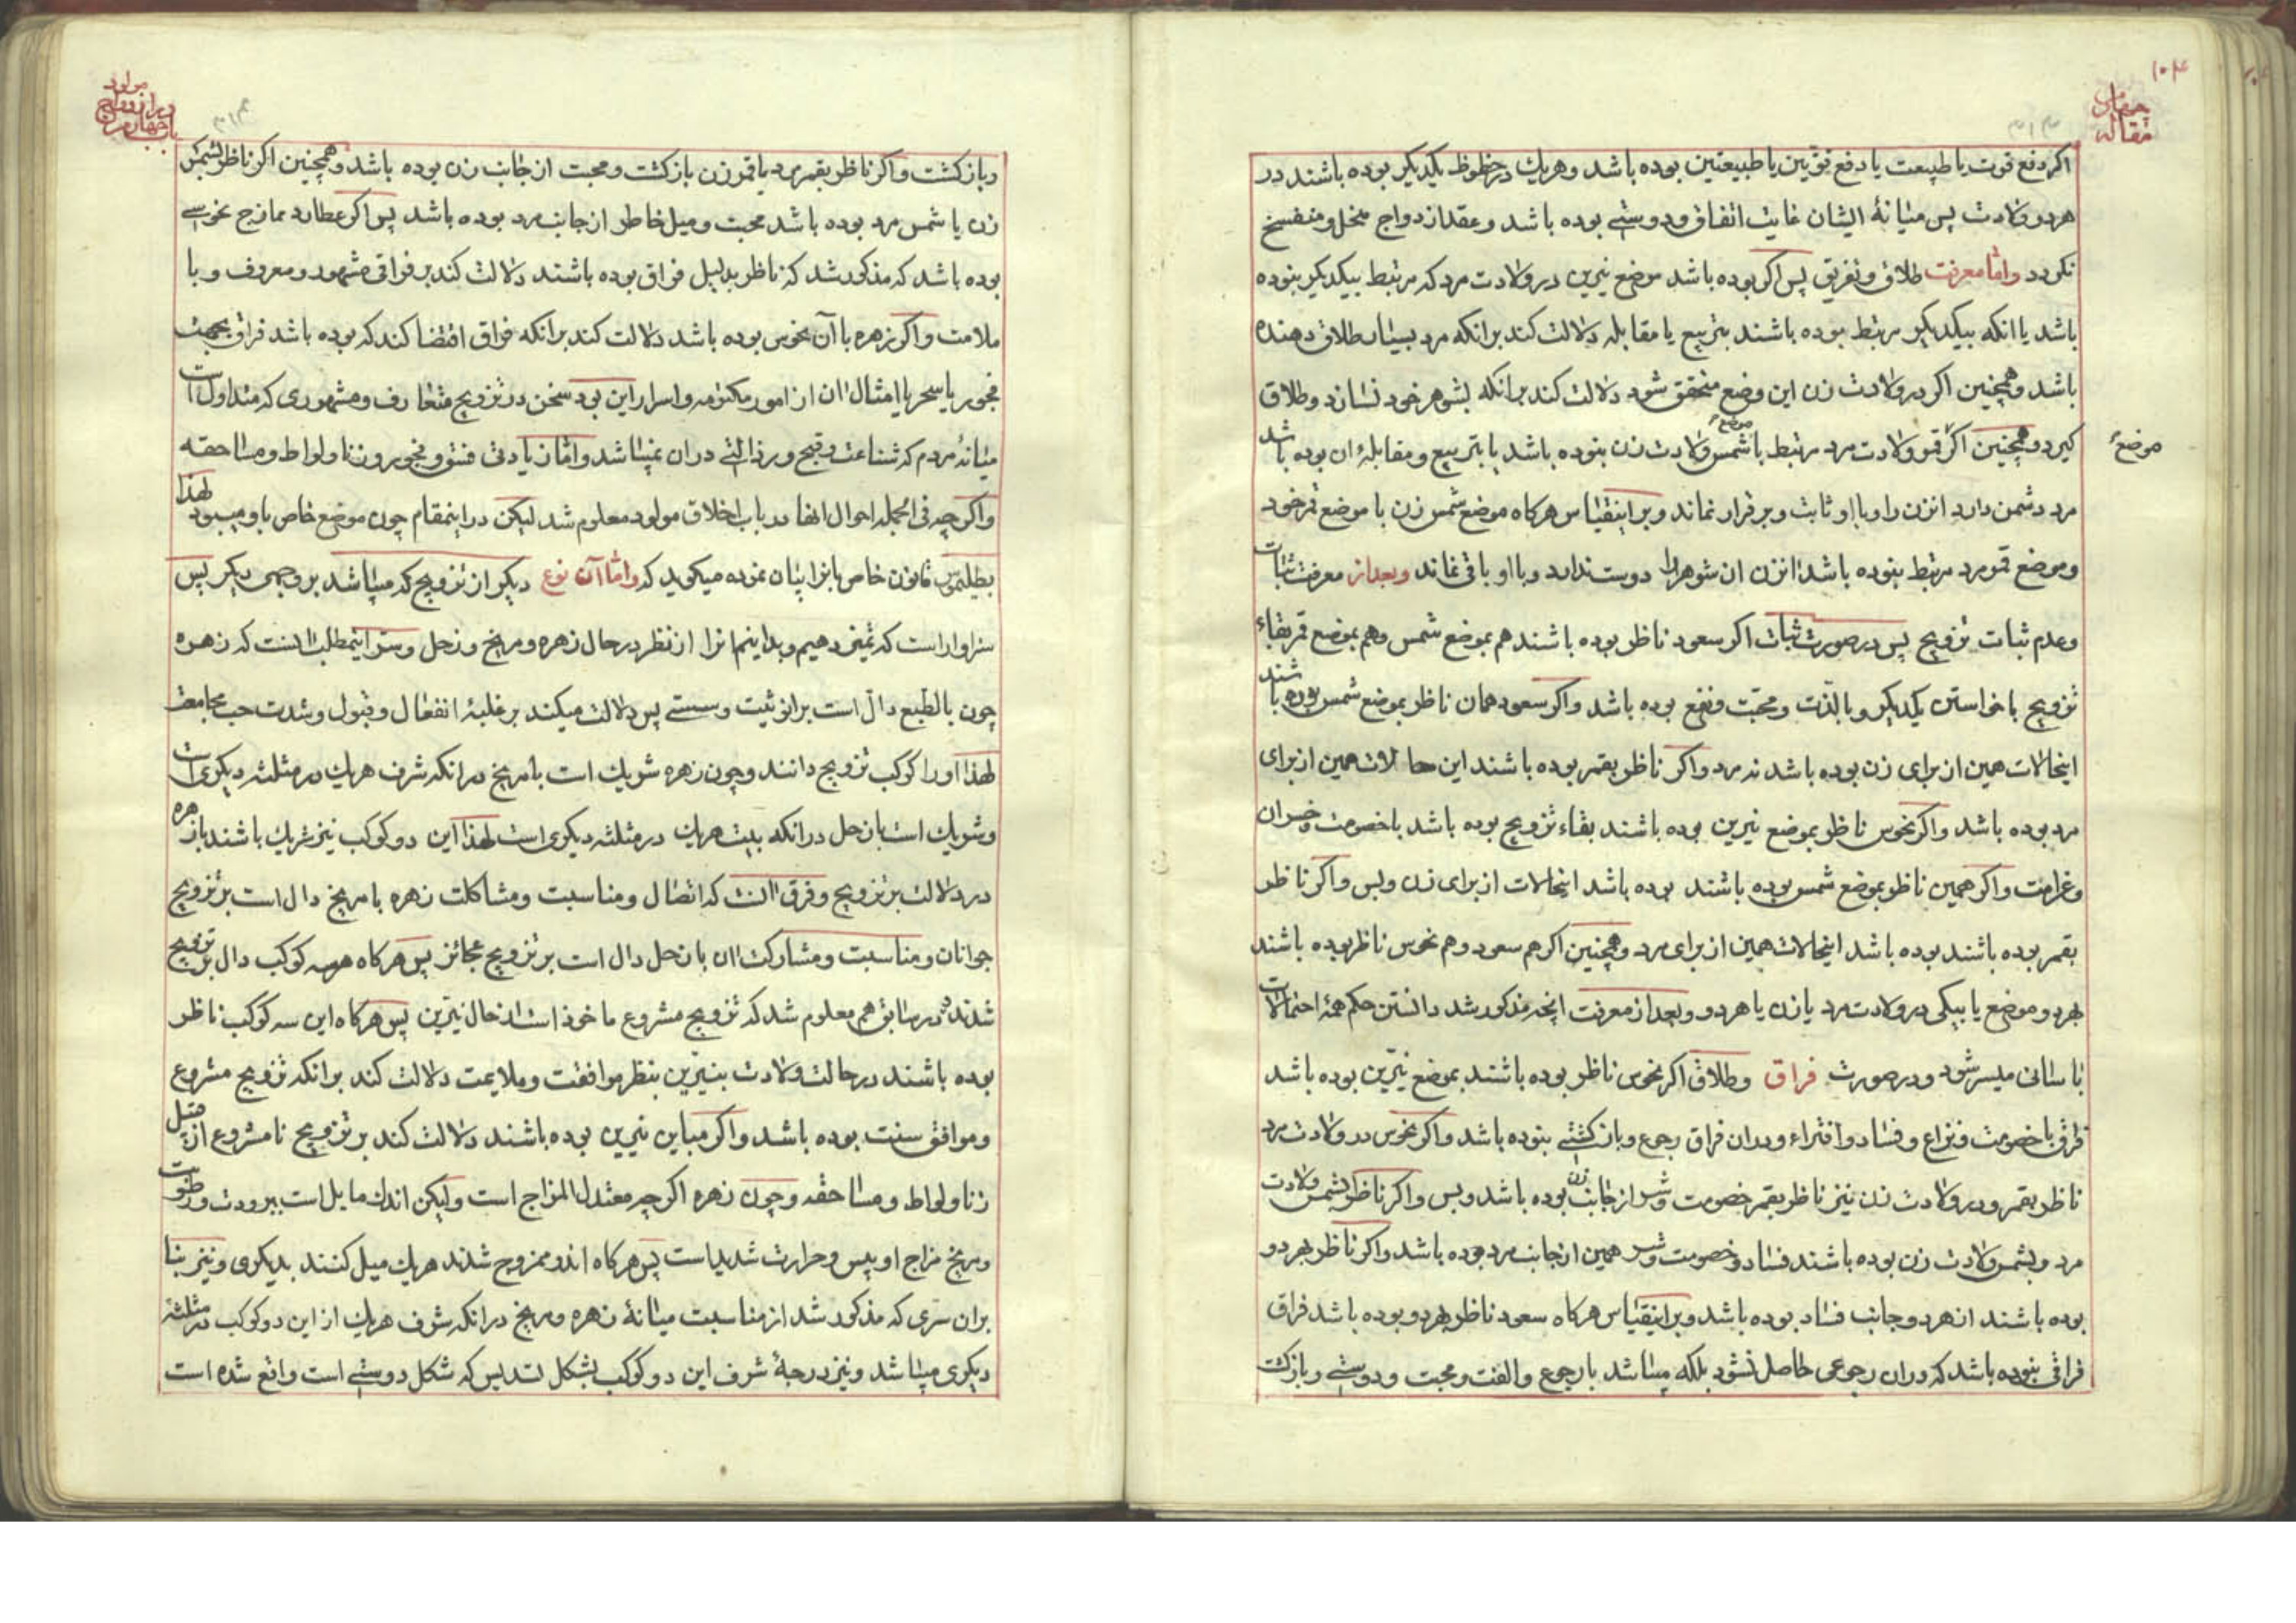 ۱۰۴
مقاله چهارم
۳۱۳
اکر دفع قوت یا طبیعت یا دفع قوتین یا طبیعتین بوده باشد و هریك در حظوظ یکدیکر بوده باشند در
هر دو ولادت پس میانهٔ ایشان غایت اتفاق و دوستی بوده باشد و عقد ازدواج منحل و منفسخ
نکردد واما معرفت طلاق و تفریق پس اکر بوده باشد موضع نیرین در ولادت مرد که مرتبط بیکدیکر نبوده
باشد یا انکه بیکدیکر مرتبط بوده باشند بتربیع یا مقابله دلالت کند برانکه مرد بسیار طلاق دهنده
باشد وهمچنین اکر در ولادت زن این وضع متحقق شود دلالت کند برانکه بشوهر خود نسازد و طلاق
کیرد وهمچنین اکر قمر ولادت مرد مرتبط با موضع شمس ولادت زن نبوده باشد یا بتربیع و مقابلهٔ ان بوده باشد
موضع
مرد دشمن دارد انزن را و با او ثابت و برقرار نماند و براینقیاس هرکاه موضع شمس زن با موضع قمر خود
و موضع قمر مرد مرتبط نبوده باشد انزن ان شوهر را دوست ندارد و با او باقی نماند وبعد از معرفت ثبات
و عدم ثبات تزویج پس در صورت ثبات اکر سعود ناظر بوده باشند هم بموضع شمس و هم بموضع قمر بقاء
تزویج با خواستن یکدیکر و با لذت و محبت و نفع بوده باشد واکر سعود همان ناظر بموضع شمس بوده باشند
اینحالات همین از برای زن بوده باشد نه مرد و اکر ناظر بقمر بوده باشند این حالات همین از برای
مرد بوده باشد واکر نحوس ناظر بموضع نیرین بوده باشند بقاء تزویج بوده باشد با خصومت و خسران
و غرامت واکر همین ناظر بموضع شمس بوده باشند بوده باشد اینحالات از برای زن و بس واکر ناظر
بقمر بوده باشند بوده باشد اینحالات همین از برای مرد وهمچنین اکر هم سعود و هم نحوس ناظر بوده باشند
بهر دو موضع یا بیکی در ولادت مرد یا زن یا هر دو و بعد از معرفت انچه مذکور شد دانستن حکم همهٔ احتمالات
باسانی میسر شود و در صورت فراق و طلاق اکر نحوس ناظر بوده باشند بموضع نیرین بوده باشد
فراق با خصومت و نزاع و فساد و افتراء و در ان فراق رجوع و بازکشتی نبوده باشد واکر نحوس در ولادت مرد
ناظر بقمر و در ولادت زن نیز ناظر بقمر خصومت و شر از جانب زن بوده باشد و بس واکر ناظر بشمس ولادت
مرد و بشمس ولادت زن بوده باشند فساد و خصومت و شر همین از جانب مرد بوده باشد واکر ناظر بهر دو
بوده باشند از هر دو جانب فساد بوده باشد و براینقیاس هرکاه سعود ناظر بهر دو بوده باشد فراق
فراقی نبوده باشد که در ان رجوعی حاصل نشود بلکه میباشد با رجوع و الفت و محبت و دوستی و بازکشت
باب چهارم در ازدواج مولود
۳۱۴
و بازکشت واکر ناظر بقمر مرد یا قمر زن بازکشت و محبت از جانب زن بوده باشد وهمچنین اکر ناظر بشمس
زن یا شمس مرد بوده باشد محبت و میل خاطر از جانب مرد بوده باشد پس اکر عطارد ممازج نحوسی
بوده باشد که مذکور شد که ناظر بدلیل فراق بوده باشند دلالت کند بر فراقی مشهور و معروف و با
ملامت واکر زهره با آن نحوس بوده باشد دلالت کند برانکه فراق اقتضا کند که بوده باشد فراق بجهت
فجور یا سحر یا امثال ان از امور مکتومه و اسرار این بود سخن در تزویج متعارف و مشهوری که متداول است
میانهٔ مردم که شناعت و قبح و رذالتی دران نمیباشد واما زیادتی فسق و فجور و زنا و لواط و مساحقه
واکرچه فی الجمله احوال انها در باب اخلاق مولود معلوم شد لیکن در اینمقام چون موضع خاص باو میبود لهذا
بطلیموس قانون خاص بانرا بیان نموده میکوید که واما آن نوع دیکر از تزویج که میباشد بر وجهی دیکر پس
سزاوار است که تمیز دهیم و بدانیم انرا از نظر در حال زهره و مریخ و زحل و سر اینمطلب انست که زهره
چون بالطبع دال است بر انوثیت و سستی پس دلالت میکند بر غلبهٔ انفعال و قبول و شدت حب مجامعت
لهذا او را کوکب تزویج دانند و چون زهره شریك است با مریخ در انکه شرف هریك در مثلثه دیکری است
و شریك است با زحل در انکه بیت هریك در مثلثه دیکری است لهذا این دو کوکب نیز شریك باشند با زهره
در دلالت بر تزویج و فرق انست که اتصال و مناسبت و مشاکلت زهره با مریخ دال است بر تزویج
جوانان و مناسبت و مشارکت ان با زحل دال است بر تزویج عجائز پس هرکاه هر سه کوکب دال بر تزویج
شدند و در سابق هم معلوم شد که تزویج مشروع ماخوذ است از حال نیرین پس هرکاه این سه کوکب ناظر
بوده باشند در حالت ولادت بنیرین بنظر موافقت و ملایمت دلالت کند برانکه تزویج مشروع
و موافق سنت بوده باشد واکر مباین نیرین بوده باشند دلالت کند بر تزویج نامشروع از قبیل
زنا و لواط و مساحقه و چون زهره اکرچه معتدل المزاج است ولیکن اندك مایل است ببرودت و رطوبت
و مریخ مزاج او یبس و حرارت شدید است پس هرکاه اندو ممزوج شدند هریك میل کنند بدیکری و نیز بنا
بران سری که مذکور شد از مناسبت میانهٔ زهره و مریخ درانکه شرف هریك از این دو کوکب در مثلثهٔ
دیکری میباشد و نیز درجهٔ شرف این دو کوکب بشکل تسدیس که شکل دوستی است واقع شده است